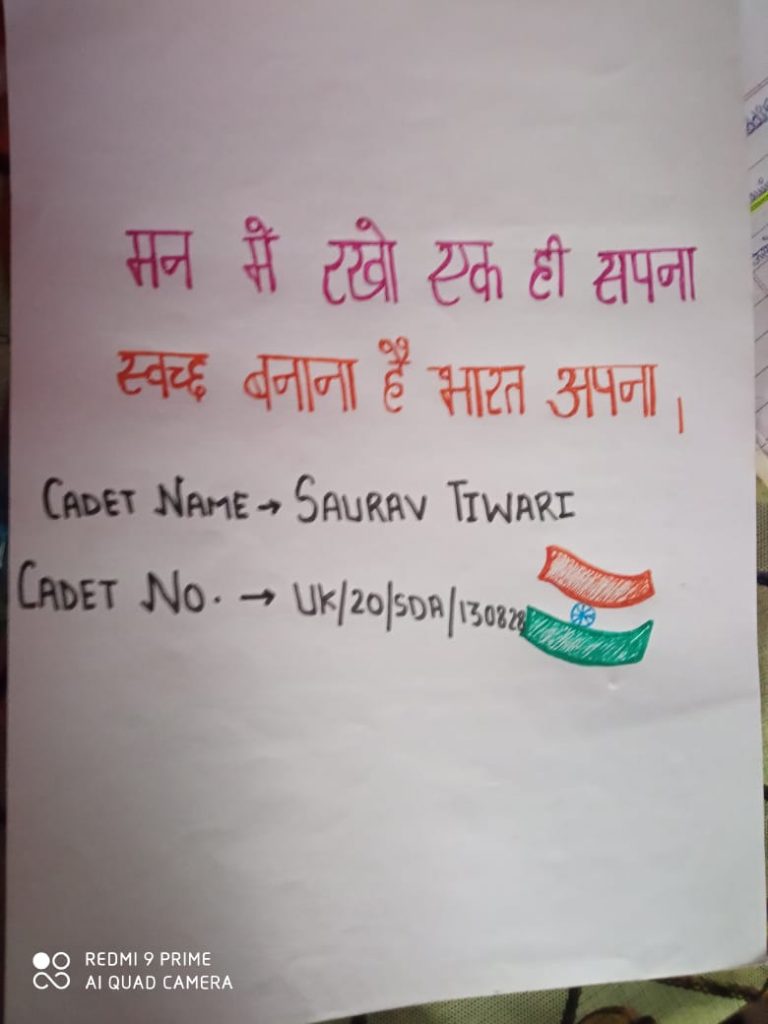 मन में रखो एक ही सपना
स्वच्छ बनाना है भारत अपना।
CADET NAME → SAURAV TIWARI
CADET NO. → UK/20/SDA/130828
REDMI 9 PRIME
AI QUAD CAMERA